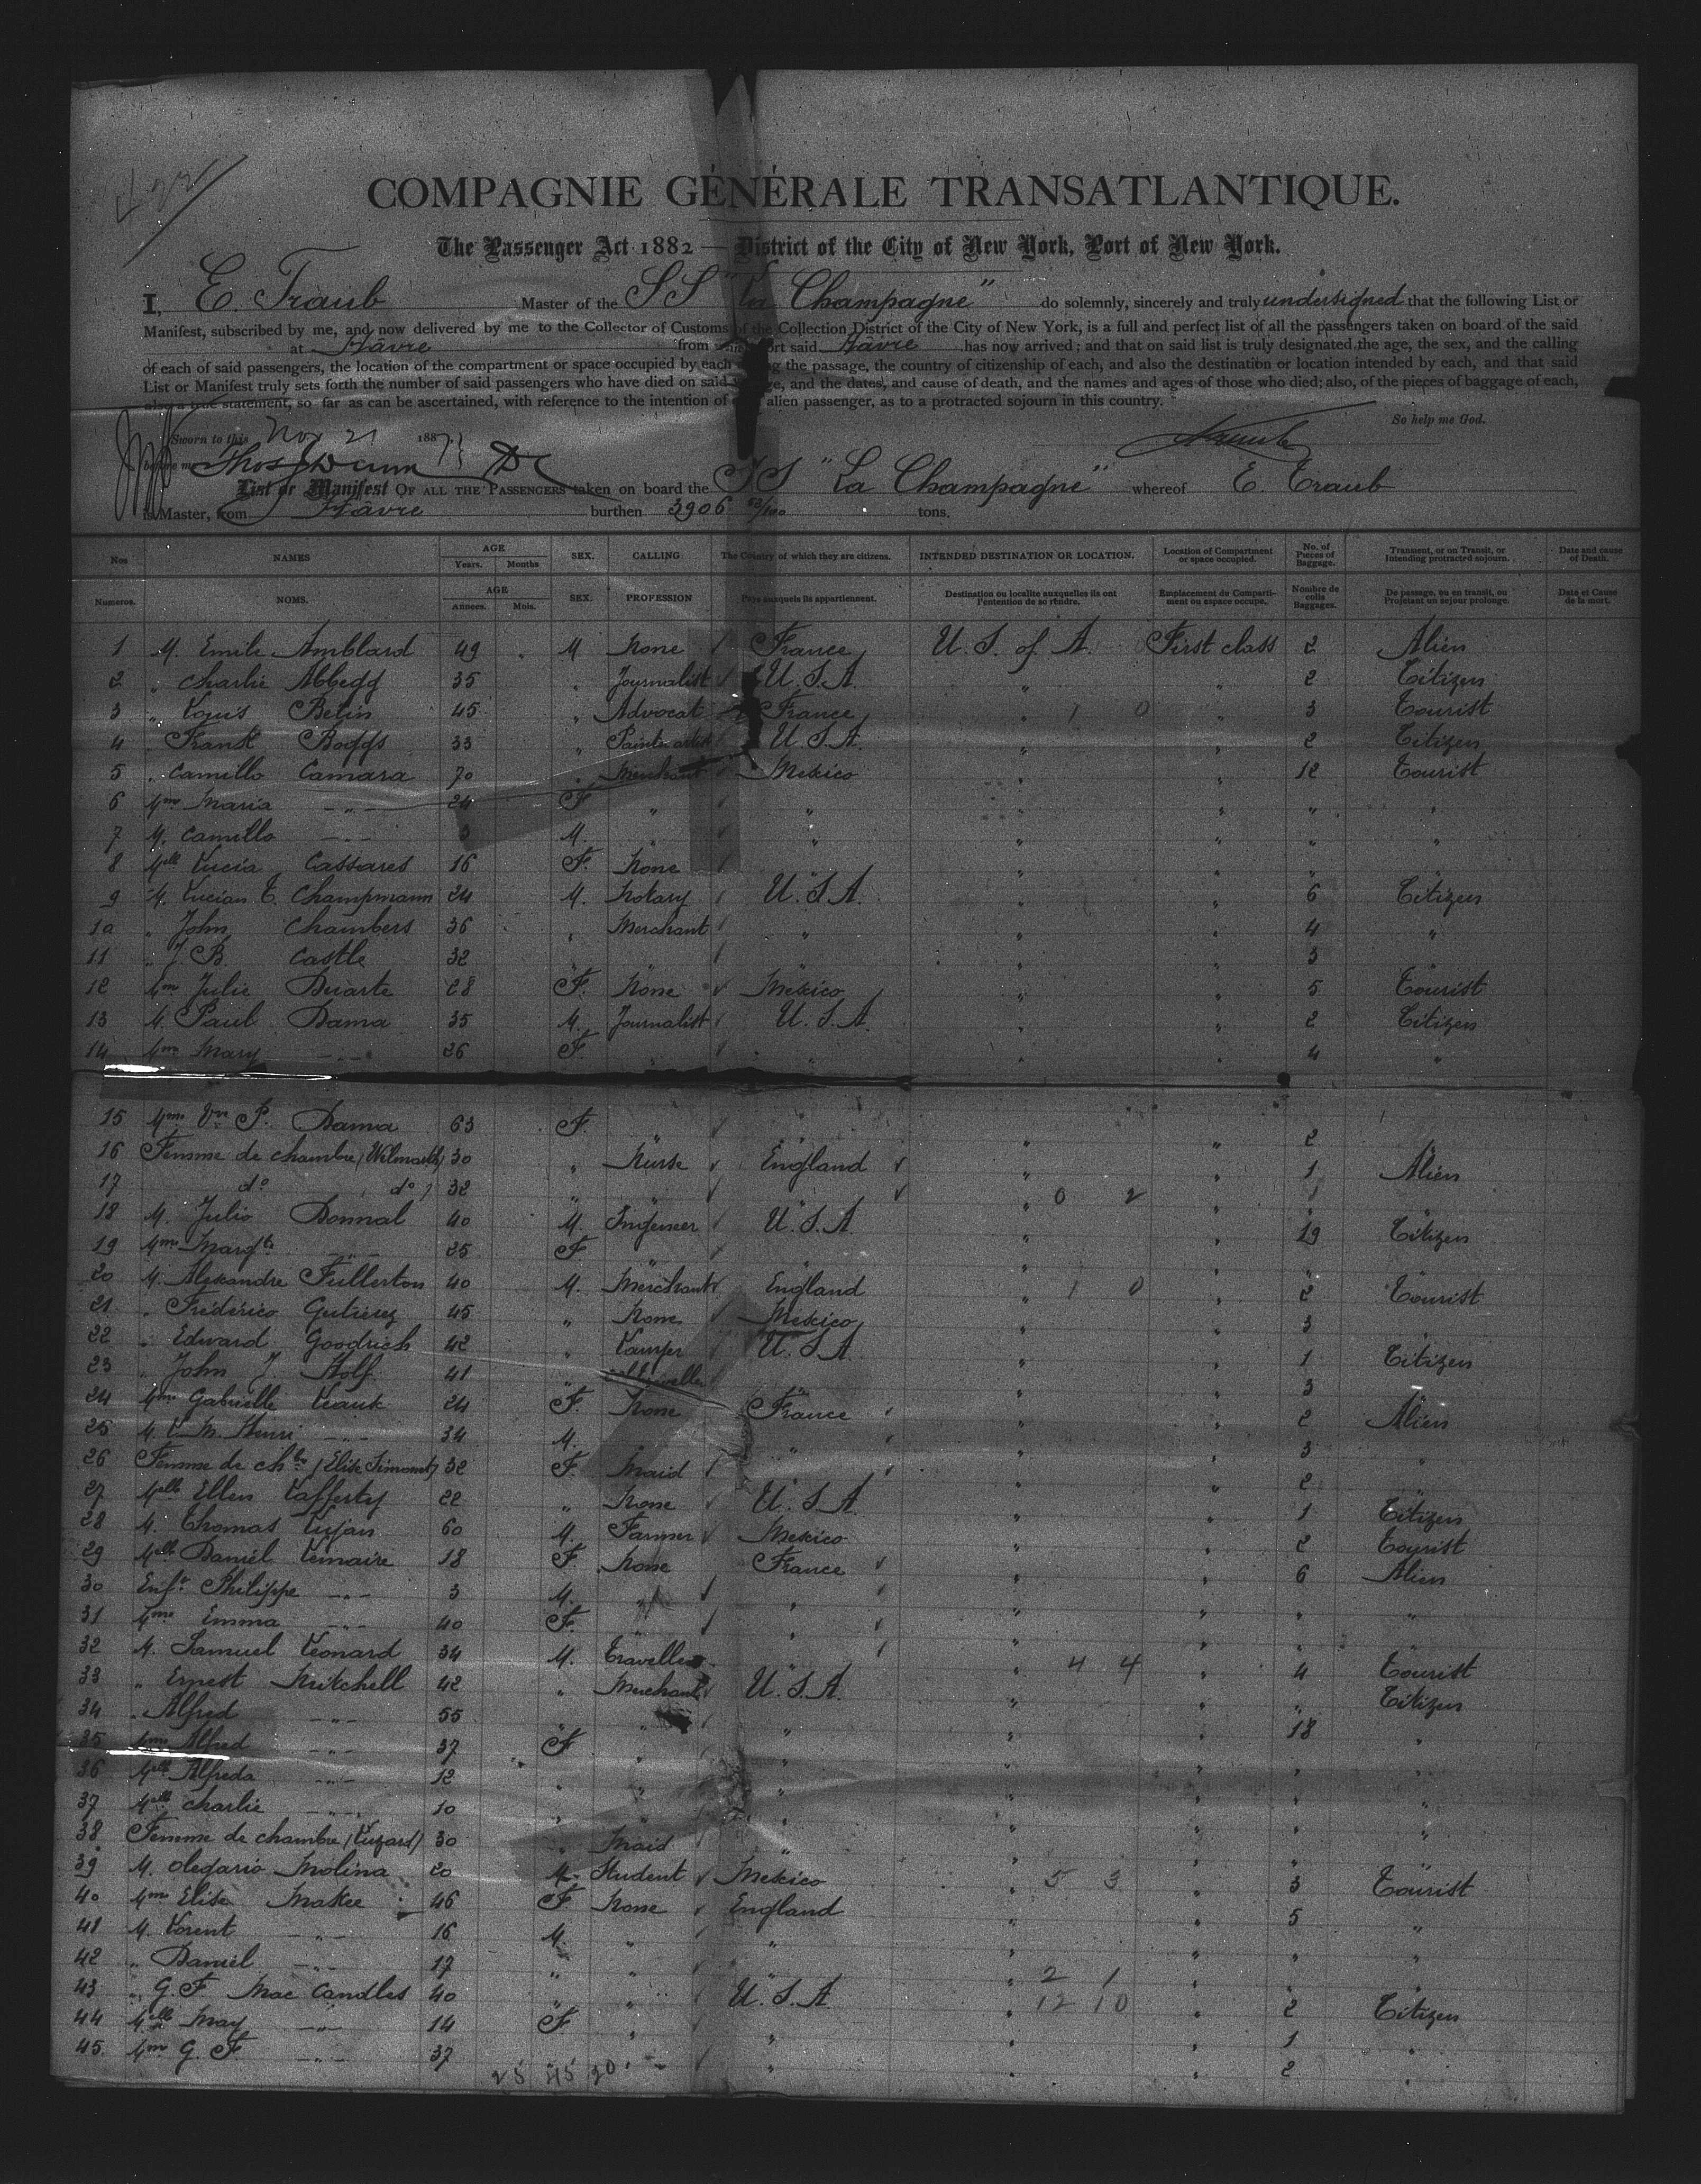 COMPAGNIE GÉNÉRALE TRANSATLANTIQUE.
The Passenger Act 1882 — District of the City of New York, Port of New York.
I, E. Traub Master of the SS "La Champagne" do solemnly, sincerely and truly undersigned that the following List or
Manifest, subscribed by me, and now delivered by me to the Collector of Customs of the Collection District of the City of New York, is a full and perfect list of all the passengers taken on board of the said
at Hâvre from port said Hâvre has now arrived; and that on said list is truly designated the age, the sex, and the calling
of each of said passengers, the location of the compartment or space occupied by each during the passage, the country of citizenship of each, and also the destination or location intended by each, and that said
List or Manifest truly sets forth the number of said passengers who have died on said voyage, and the dates, and cause of death, and the names and ages of those who died; also, of the pieces of baggage of each,
also a true statement, so far as can be ascertained, with reference to the intention of alien passenger, as to a protracted sojourn in this country.
So help me God.
Sworn to this Nov 21 1887
before me Thos J Dunn DC Traub
List or Manifest OF ALL THE PASSENGERS taken on board the SS "La Champagne" whereof E. Traub
is Master, from Hâvre burthen 3906 52/100 tons.
Nos NAMES AGE Years. Months SEX. CALLING The Country of which they are citizens. INTENDED DESTINATION OR LOCATION. Location of Compartment or space occupied. No. of Pieces of Baggage. Transient, or on Transit, or Intending protracted sojourn. Date and cause of Death.
Numeros. NOMS. AGE Années. Mois. SEX. PROFESSION Pays auxquels ils appartiennent. Destination ou localite auxquelles ils ont l'entention de se rendre. Emplacement du Comparti-ment ou espace occupe. Nombre de colis Baggages. De passage, ou en transit, ou Projetant un sejour prolonge. Date et Cause de la mort.
1 M. Emile Amblard 49 M None France U. S. of A. First class 2 Alien
2 " Charlie Abbegg 35 " Journalist U.S.A. " " 2 Citizen
3 " Louis Belin 45 " Advocat France " 1 0 " 3 Tourist
4 " Frank Boggs 33 " Painter artist U.S.A. " " 2 Citizen
5 " Camillo Camara 70 " Merchant Mexico " " 12 Tourist
6 Mme Maria -"- 24 F " " " " " "
7 M. Camillo -"- 3 M. " " " " " "
8 Mlle Lucia Cassares 16 F. None " " " "
9 M. Lucian T. Champmann 24 M. Notary U.S.A. " " 6 Citizen
10 " John Chambers 36 " Merchant " " " 4 "
11 " J. B. Castle 32 " " " " " 3 "
12 Mme Julie Duarte 28 F. None Mexico " " 5 Tourist
13 M. Paul Dama 35 M. Journalist U.S.A. " " 2 Citizen
14 Mme Mary -"- 26 F. " " " " 4 "
15 Mme Vve P. Dama 63 F. " " " 2
16 Femme de chambre (Wilmarth) 30 " Nurse England " " 1 Alien
17 do do 32 " " " " 0 2 " 1 "
18 M. Julio Donnal 40 M. Engineer U.S.A. " " 19 Citizen
19 Mme Margte -"- 25 F " " " " " "
20 M. Alexandre Fullerton 40 M. Merchant England " 1 0 " 2 Tourist
21 " Fréderico Gutierez 45 " None Mexico " " 3 "
22 " Edward Goodrich 42 " Lawyer U.S.A. " " 1 Citizen
23 " John J. 41 " " " 3 "
24 Mme Gabrielle 24 F. None France " " 2 Alien
25 M. Henri -"- 34 M. " " " " 3 "
26 Femme de chbre (Elise Simonet) 32 F. Maid " " " 2
27 Mlle Ellen Lafferty 22 " None U.S.A. " " 1 Citizen
28 M. Thomas Lujan 60 M. Farmer Mexico " " 2 Tourist
29 Mlle Daniel Lemaire 18 F. None France " " 6 Alien
30 Enft Philippe -"- 3 M. " " " " " "
31 Mme Emma -"- 40 F. " " " " "
32 M. Samuel Leonard 34 M. Traveller " 4 4 " 4 Tourist
33 " Ernest Mitchell 42 " Merchant U.S.A. " " " Citizen
34 " Alfred -"- 55 " " " " " 18 "
35 Mme Alfred -"- 37 F " " " " " "
36 Mlle Alfreda -"- 12 " " " " " " "
37 Mlle Charlie -"- 10 " " " " " " "
38 Femme de chambre (Luzard) 30 " Maid " " " " "
39 M. Olegario Molina 20 M. Student Mexico " 5 3 " 3 Tourist
40 Mme Elise Makee 46 F None England " " 5 "
41 M. Lorent -"- 16 M. " " " " " "
42 " Daniel -"- 17 " " " 2 1 " "
43 " G. F. Mac Candles 40 " " U.S.A. " 12 10 " 2 Citizen
44 Mlle May -"- 14 F. " " " " 1 "
45. Mme G. F. -"- 37 " " " " " 2 "
25 45 20